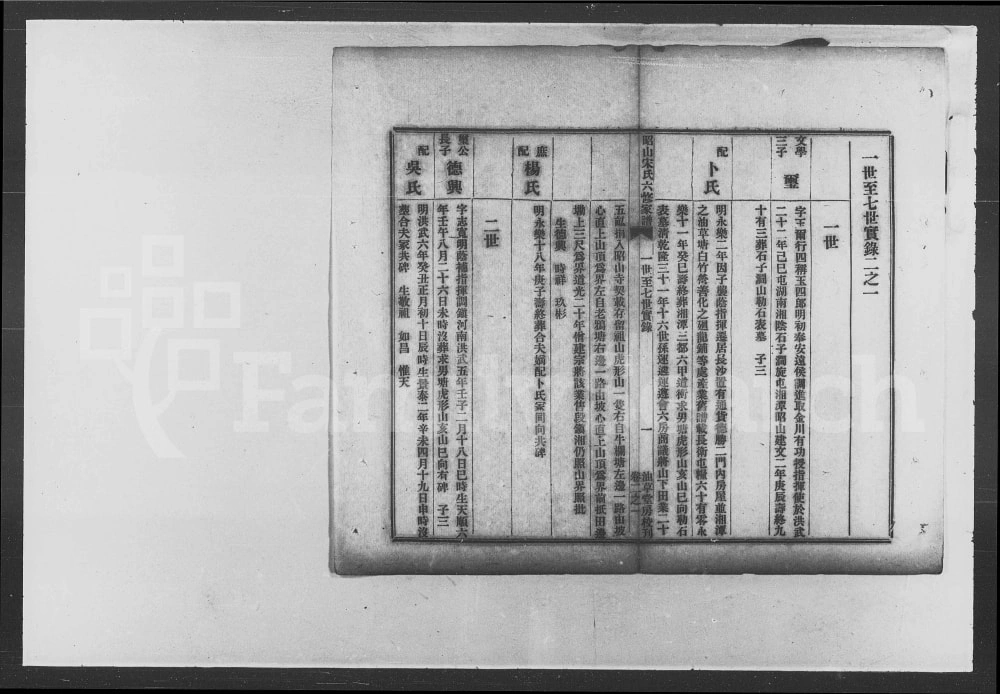 一世至七世實錄二之一
一世
文學
三子
璽
字玉爾行四稱玉四郎明初奉安遠侯調進取金川有功授指揮使於洪武
二十二年己巳屯湖南湘陰石子澗旋屯湘潭昭山建文二年庚辰壽終九
十有三葬石子澗山勒石表墓 子三
配
卜氏
明永樂二年因子襲蔭指揮遷居長沙置有通貨德勝二門內房屋並湘潭
之油草塘白竹營善化之廻龍舖等處產業舊譜載長衛屯糧六十有零永
樂十一年癸巳壽終葬湘潭三都六甲道衝求男塘虎形山亥山巳向勒石
表墓清乾隆三十一年十六世孫運遴運選會六房商議將山下田業二十
昭山宋氏六修家譜
一世至七世實錄
一
卷二之一
油草堂房校刊
五畝捐入昭山寺契載存留祖山虎形山一隻右自牛欄塘左邊一路山坡
心直上山頂為界左自老鴉塘右邊一路山坡心直上山頂為界前抵田邊
墈上三尺為界道光二十年僧建宗將該業售段鎮湘仍照山界照批
生德興 時祥 玖彬
庶
配
楊氏
明永樂十八年庚子壽終葬合夫嫡配卜氏冢同向共碑
二世
璽公
長子
德興
字志寬明蔭補指揮調鎮河南洪武五年壬子二月十八日巳時生天順六
年壬午八月二十六日未時沒葬求男塘虎形山亥山巳向有碑 子三
配
吳氏
明洪武六年癸丑正月初十日辰時生景泰二年辛未四月十九日申時沒
葬合夫冢共碑 生敬祖 如昌 惟天
FamilySearch